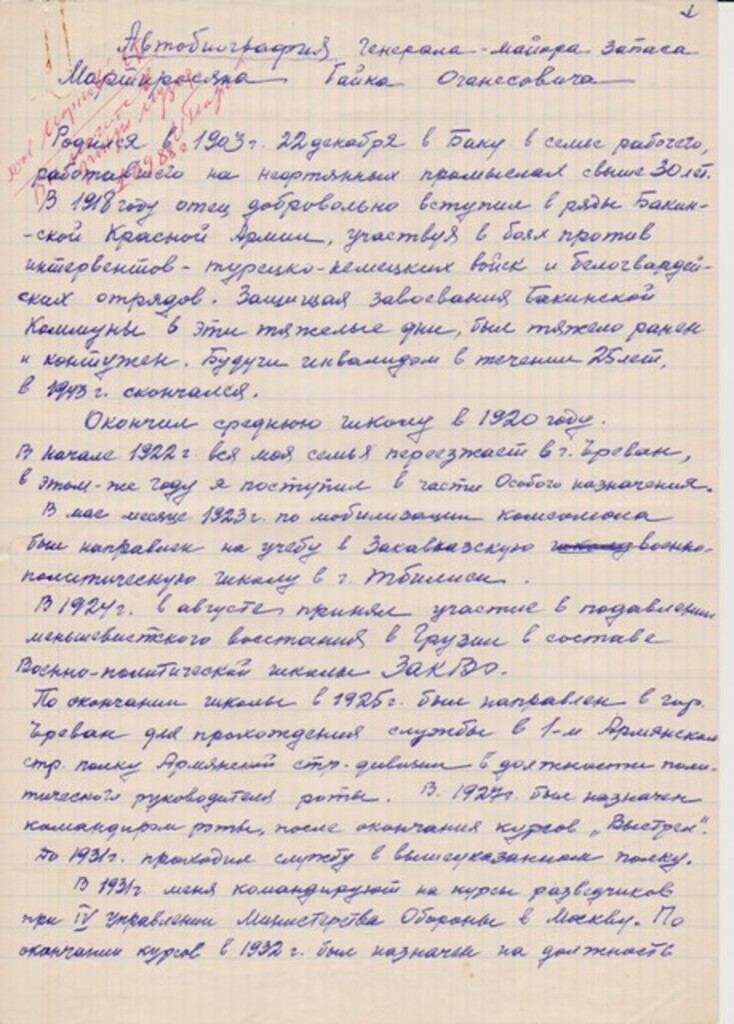 1
Автобиография генерала-майора запаса
Мартиросяна Гайка Оганесовича
Родился в 1903 г. 22 декабря в Баку в семье рабочего,
работавшего на нефтянных промыслах свыше 30 лет.
В 1918 году отец добровольно вступил в ряды Бакин-
-ской Красной Армии, участвуя в боях против
интервентов - турецко-немецких войск и белогвардей-
ских отрядов. Защищая завоевания Бакинской
Коммуны в эти тяжелые дни, был тяжело ранен
и контужен. Будучи инвалидом в течении 25 лет,
в 1943 г. скончался.
Окончил среднюю школу в 1920 году.
В начале 1922 г. вся моя семья переезжает в г. Ереван,
в этом-же году я поступил в части Особого назначения.
В мае месяце 1923 г. по мобилизации комсомола
был направлен на учебу в Закавказскую школу военно-
политическую школу в г. Тбилиси.
В 1924 г. в августе принял участие в подавлении
меньшевистского восстания в Грузии в составе
Военно-политической школы ЗакВО.
По окончании школы в 1925 г. был направлен в гор.
Ереван для прохождения службы в 1-м Армянском
стр. полку Армянской стр. дивизии в должности поли-
тического руководителя роты. В 1927 г. был назначен
командиром роты, после окончания курсов „Выстрел".
До 1931 г. проходил службу в вышеуказанном полку.
В 1931 г. меня командируют на курсы разведчиков
при IV управлении Министерства Обороны в Москву. По
окончании курсов в 1932 г. был назначен на должность